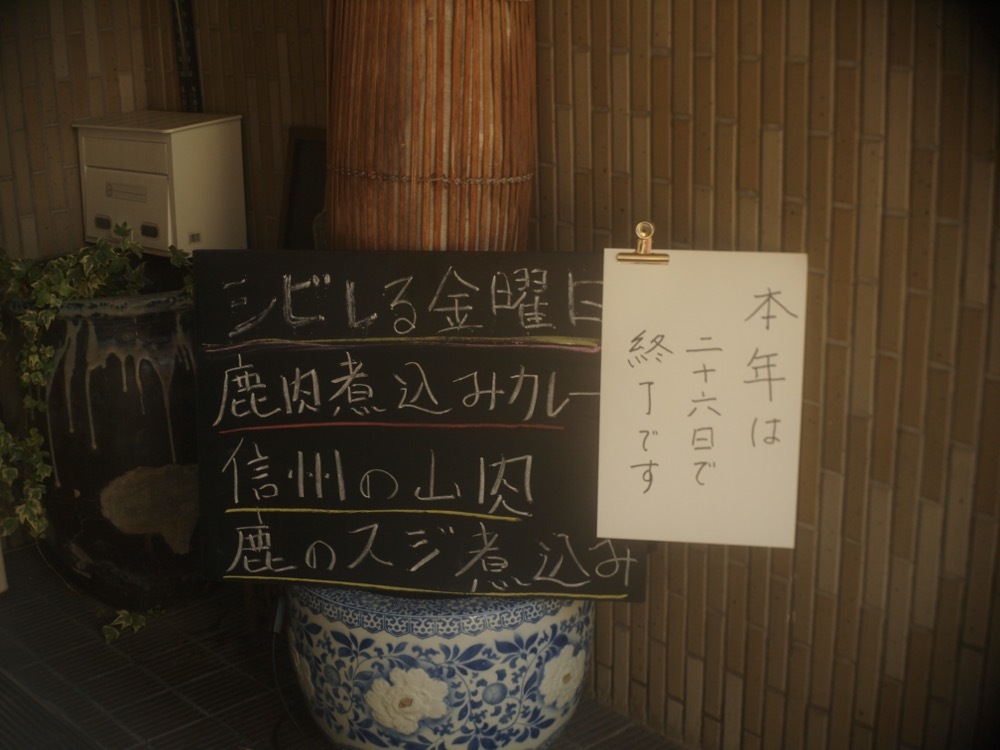 シビレる金曜日
鹿肉煮込みカレー
信州の山肉
鹿のスジ煮込み
本年は
二十六日で
終了です